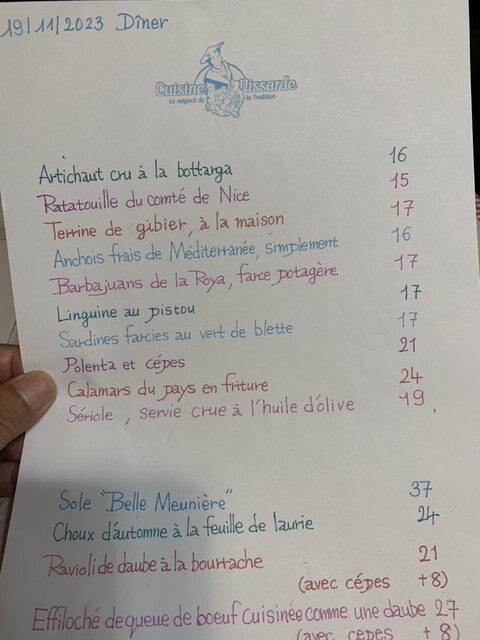 19/11/2023 Dîner
Cuisine Nissarde
Le respect de la Tradition
Artichaut cru à la bottarga 16
Ratatouille du comté de Nice 15
Terrine de gibier, à la maison 17
Anchois frais de Méditerranée, simplement 16
Barbajuans de la Roya, farce potagère 17
Linguine au pistou 17
Sardines farcies au vert de blette 17
Polenta et cépes 21
Calamars du pays en friture 24
Sériole, servie crue à l'huile d'olive 19
Sole "Belle Meunière" 37
Choux d'automne à la feuille de laurie 24
Ravioli de daube à la bourrache 21
(avec cépes +8)
Effiloché de queue de boeuf Cuisinée comme une daube 27
(avec cépes +8)